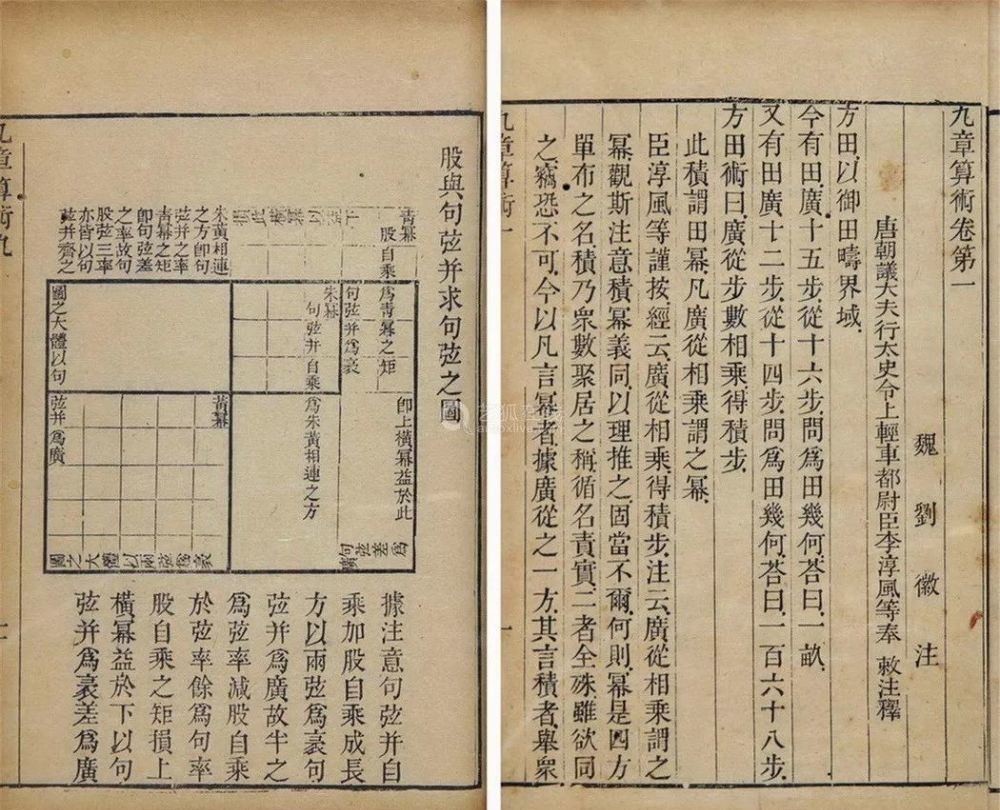 九章算術卷第一
魏劉徽注
唐朝議大夫行太史令上輕車都尉臣李淳風等奉敕注釋
方田以御田疇界域
今有田廣十五步從十六步問爲田幾何荅曰一畝
又有田廣十二步從十四步問爲田幾何荅曰一百六十八步
方田術曰廣從步數相乘得積步
此積謂田冪凡廣從相乘謂之冪
臣淳風等謹按經云廣從相乘得積步注云廣從相乘謂之
冪觀斯注意積冪義同以理推之固當不爾何則冪是四方
單布之名積乃衆數聚居之稱循名責實二者全殊雖欲同
之竊恐不可今以凡言冪者據廣從之一方其言積者舉衆
九章算術一
一
股與句弦并求句弦之圖
青冪
股自乘爲青冪之矩
句弦并爲袤
朱冪
句弦并自乘爲朱黃相連之方
即上橫冪益於此
句弦差爲廣
黃冪
朱黃相連
之方即句
弦并之率
青冪之矩
即句弦差
之率故句
股弦三率
亦皆以句
弦并齊之
圖之大體以句
弦并爲廣
圖之大體以兩弦爲袤
據注意句弦并自
乘加股自乘成長
方以兩弦爲袤句
弦并爲廣故半之
爲弦率減股自乘
於弦率餘爲句率
股自乘之矩損上
橫冪益於下以句
弦并爲袤差爲廣
九章算術九